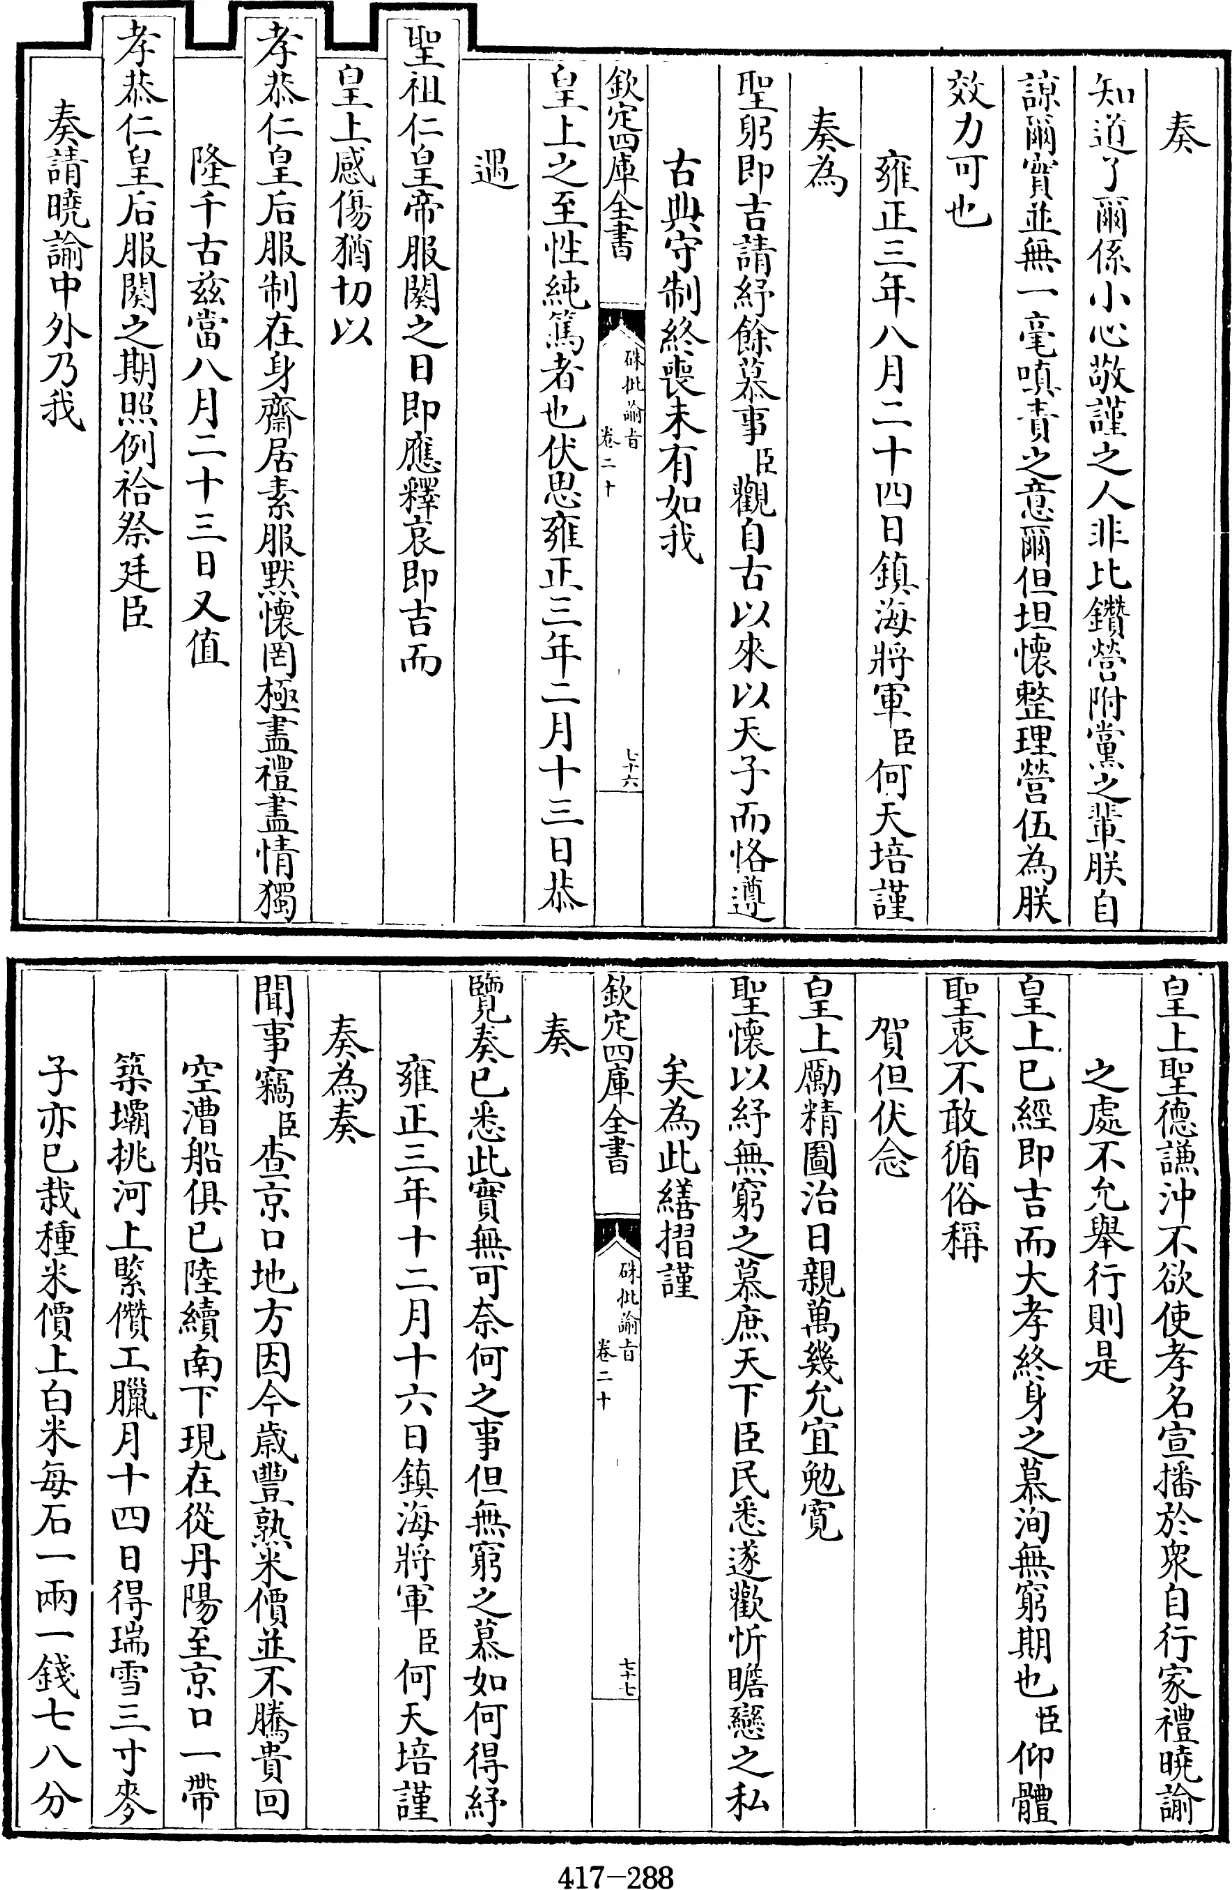 奏
知道了爾係小心敬謹之人非比鑽營附黨之輩朕自
諒爾實並無一毫嗔責之意爾但坦懷整理營伍為朕
效力可也
雍正三年八月二十四日鎮海將軍臣何天培謹
奏為
聖躬即吉請紓餘慕事臣觀自古以來以天子而恪遵
古典守制終喪未有如我
欽定四庫全書
硃批諭旨
卷二十
七十六
皇上之至性純篤者也伏思雍正三年二月十三日恭
遇
聖祖仁皇帝服闋之日即應釋哀即吉而
皇上感傷猶切以
孝恭仁皇后服制在身齋居素服默懷罔極盡禮盡情獨
隆千古茲當八月二十三日又值
孝恭仁皇后服闋之期照例祫祭廷臣
奏請曉諭中外乃我
皇上聖德謙沖不欲使孝名宣播於衆自行家禮曉諭
之處不允舉行則是
皇上已經即吉而大孝終身之慕洵無窮期也臣仰體
聖衷不敢循俗稱
賀但伏念
皇上勵精圖治日親萬幾允宜勉寬
聖懷以紓無窮之慕庶天下臣民悉遂歡忻瞻戀之私
矣為此繕摺謹
欽定四庫全書
硃批諭旨
卷二十
七十七
奏
覽奏已悉此實無可奈何之事但無窮之慕如何得紓
雍正三年十二月十六日鎮海將軍臣何天培謹
奏為奏
聞事竊臣查京口地方因今歲豐熟米價並不騰貴回
空漕船俱已陸續南下現在從丹陽至京口一帶
築壩挑河上緊儹工臘月十四日得瑞雪三寸麥
子亦已栽種米價上白米每石一兩一錢七八分
417-288